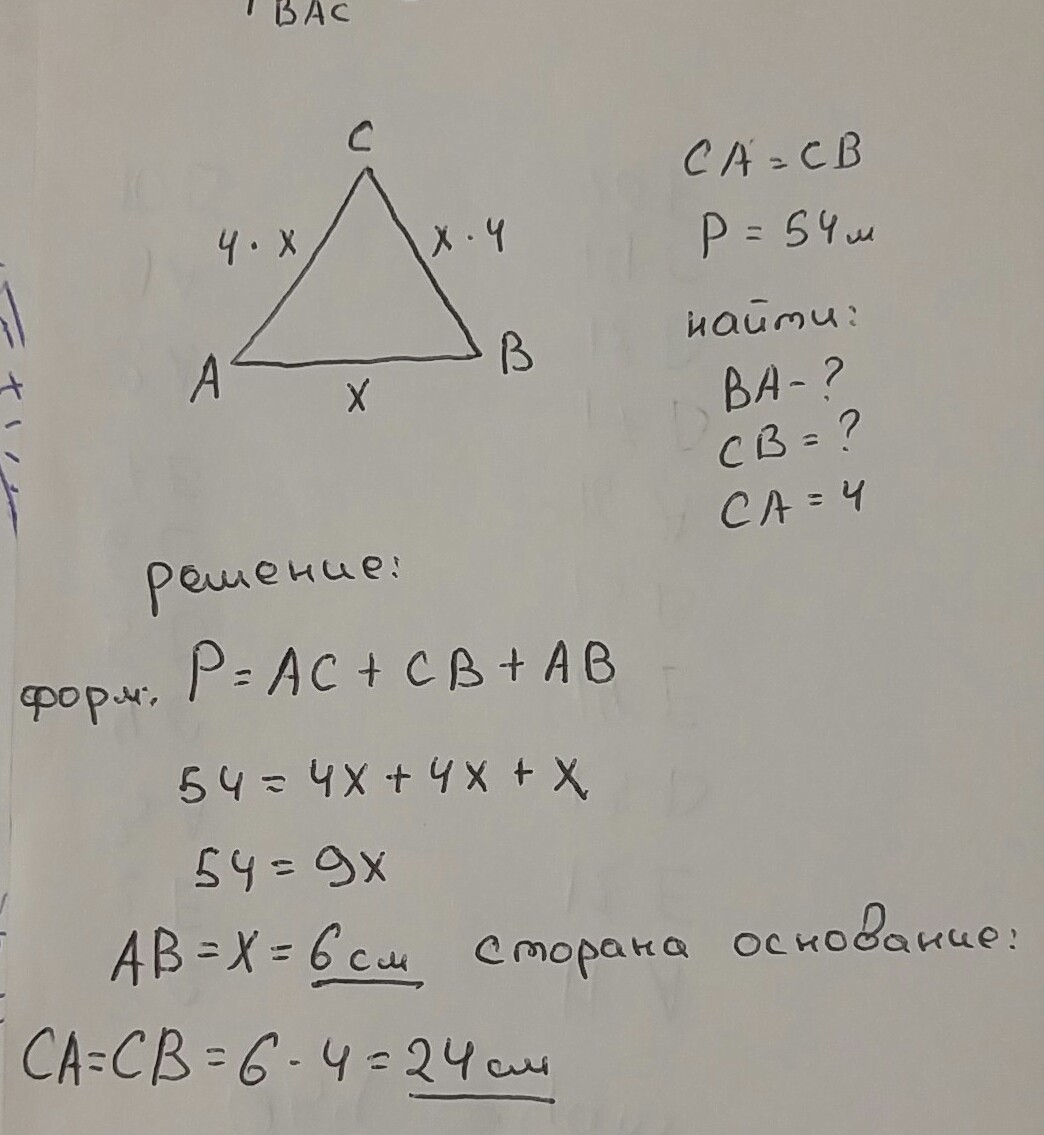 BAC
C
4 · x
x · 4
A
B
x
CA = CB
P = 54 м
найти:
BA - ?
CB = ?
CA = 4
решение:
форм. P = AC + CB + AB
54 = 4x + 4x + x
54 = 9x
AB = x = 6 см сторана основание:
CA = CB = 6 · 4 = 24 см